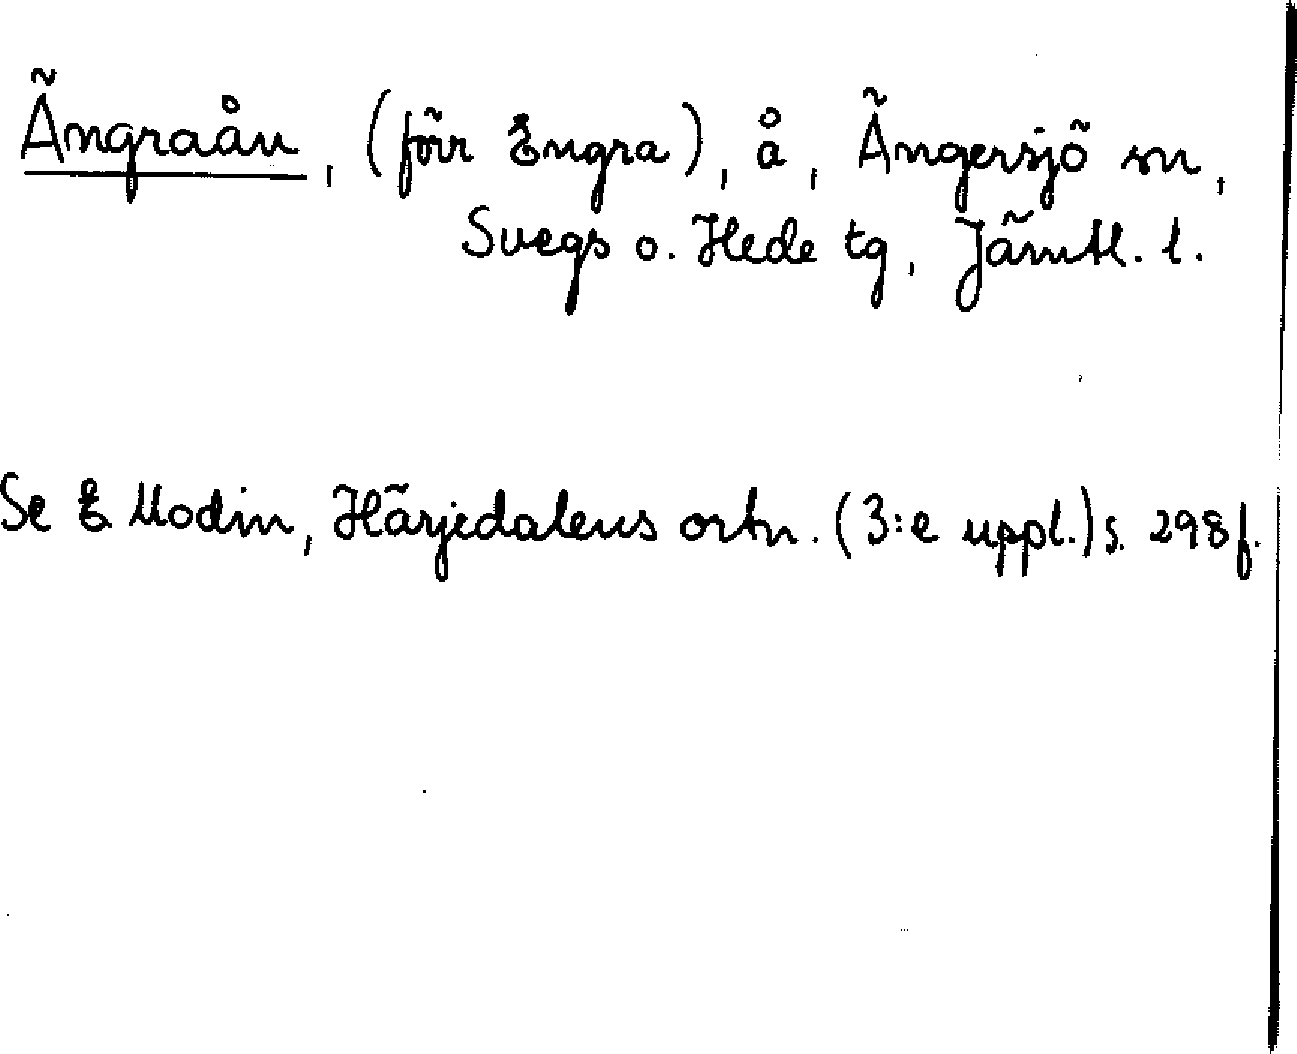 Ängraån, (förr Engra), å, Ängersjö sn,
Svegs o. Hede tg, Jämtl. l.
Se E Modin, Härjedalens ortn. (3:e uppl.) s. 298 f.